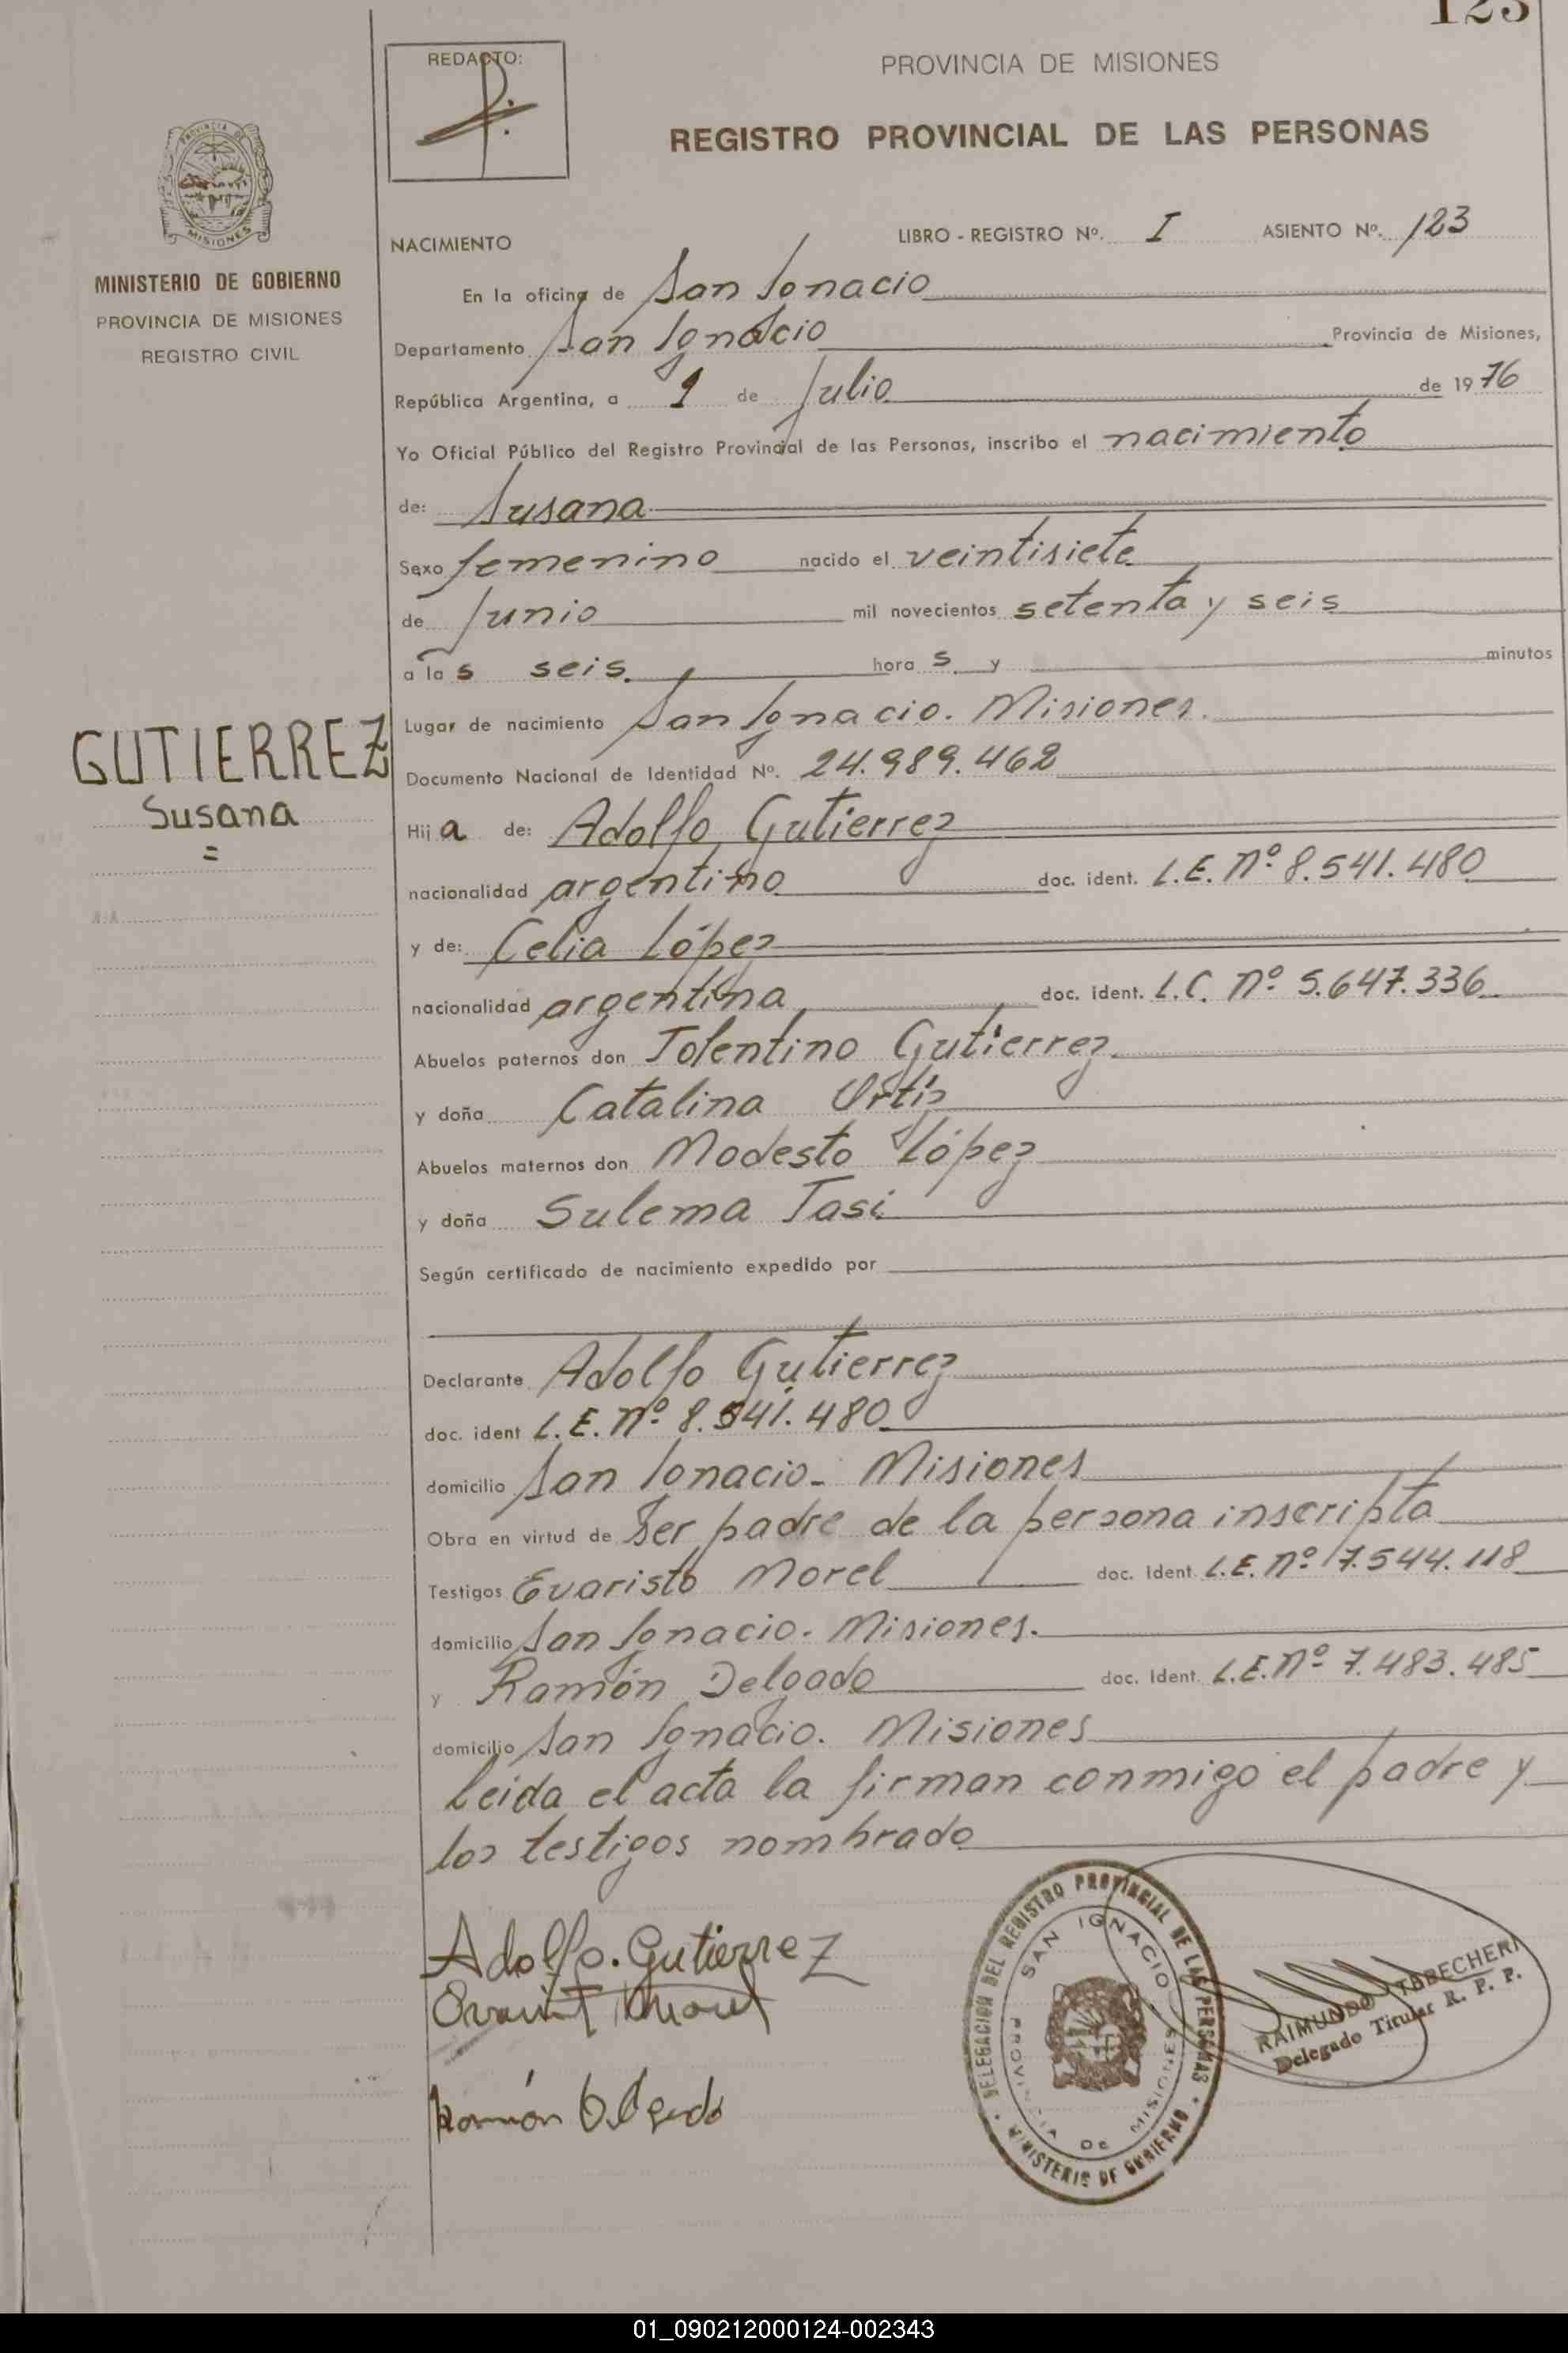 123
REDACTO:
PROVINCIA DE MISIONES
REGISTRO PROVINCIAL DE LAS PERSONAS
MISIONES
MINISTERIO DE GOBIERNO
PROVINCIA DE MISIONES
REGISTRO CIVIL
NACIMIENTO LIBRO - REGISTRO Nº. I ASIENTO Nº. 123
En la oficina de San Ignacio
Departamento San Ignacio Provincia de Misiones,
República Argentina, a 1 de Julio de 1976
Yo Oficial Público del Registro Provincial de las Personas, inscribo el nacimiento
de: Susana
Sexo femenino nacido el veintisiete
de Junio mil novecientos setenta y seis
a las seis hora s y minutos
Lugar de nacimiento San Ignacio. Misiones.
GUTIERREZ
Susana
Documento Nacional de Identidad Nº. 24.989.462
Hij a de: Adolfo Gutierrez
nacionalidad argentino doc. ident. L.E. Nº 8.541.480
y de: Celia López
nacionalidad argentina doc. ident. L.C. Nº 5.647.336
Abuelos paternos don Tolentino Gutierrez
y doña Catalina Ortíz
Abuelos maternos don Modesto López
y doña Sulema Tasi
Según certificado de nacimiento expedido por
Declarante Adolfo Gutierrez
doc. ident L.E. Nº 8.541.480
domicilio San Ignacio - Misiones
Obra en virtud de ser padre de la persona inscripta
Testigos Evaristo Morel doc. Ident. L.E. Nº 7.544.118
domicilio San Ignacio. Misiones.
y Ramón Delgado doc. Ident. L.E. Nº 7.483.485
domicilio San Ignacio. Misiones
Leida el acta la firman conmigo el padre y
los testigos nombrado
Adolfo. Gutierrez
Morel
Ramón Delgado
DELEGACION DEL REGISTRO PROVINCIAL DE LAS PERSONAS
SAN IGNACIO
PROVINCIA DE MISIONES
MINISTERIO DE GOBIERNO
RAIMUNDO
Delegado Titular R. P. P.
01_090212000124-002343